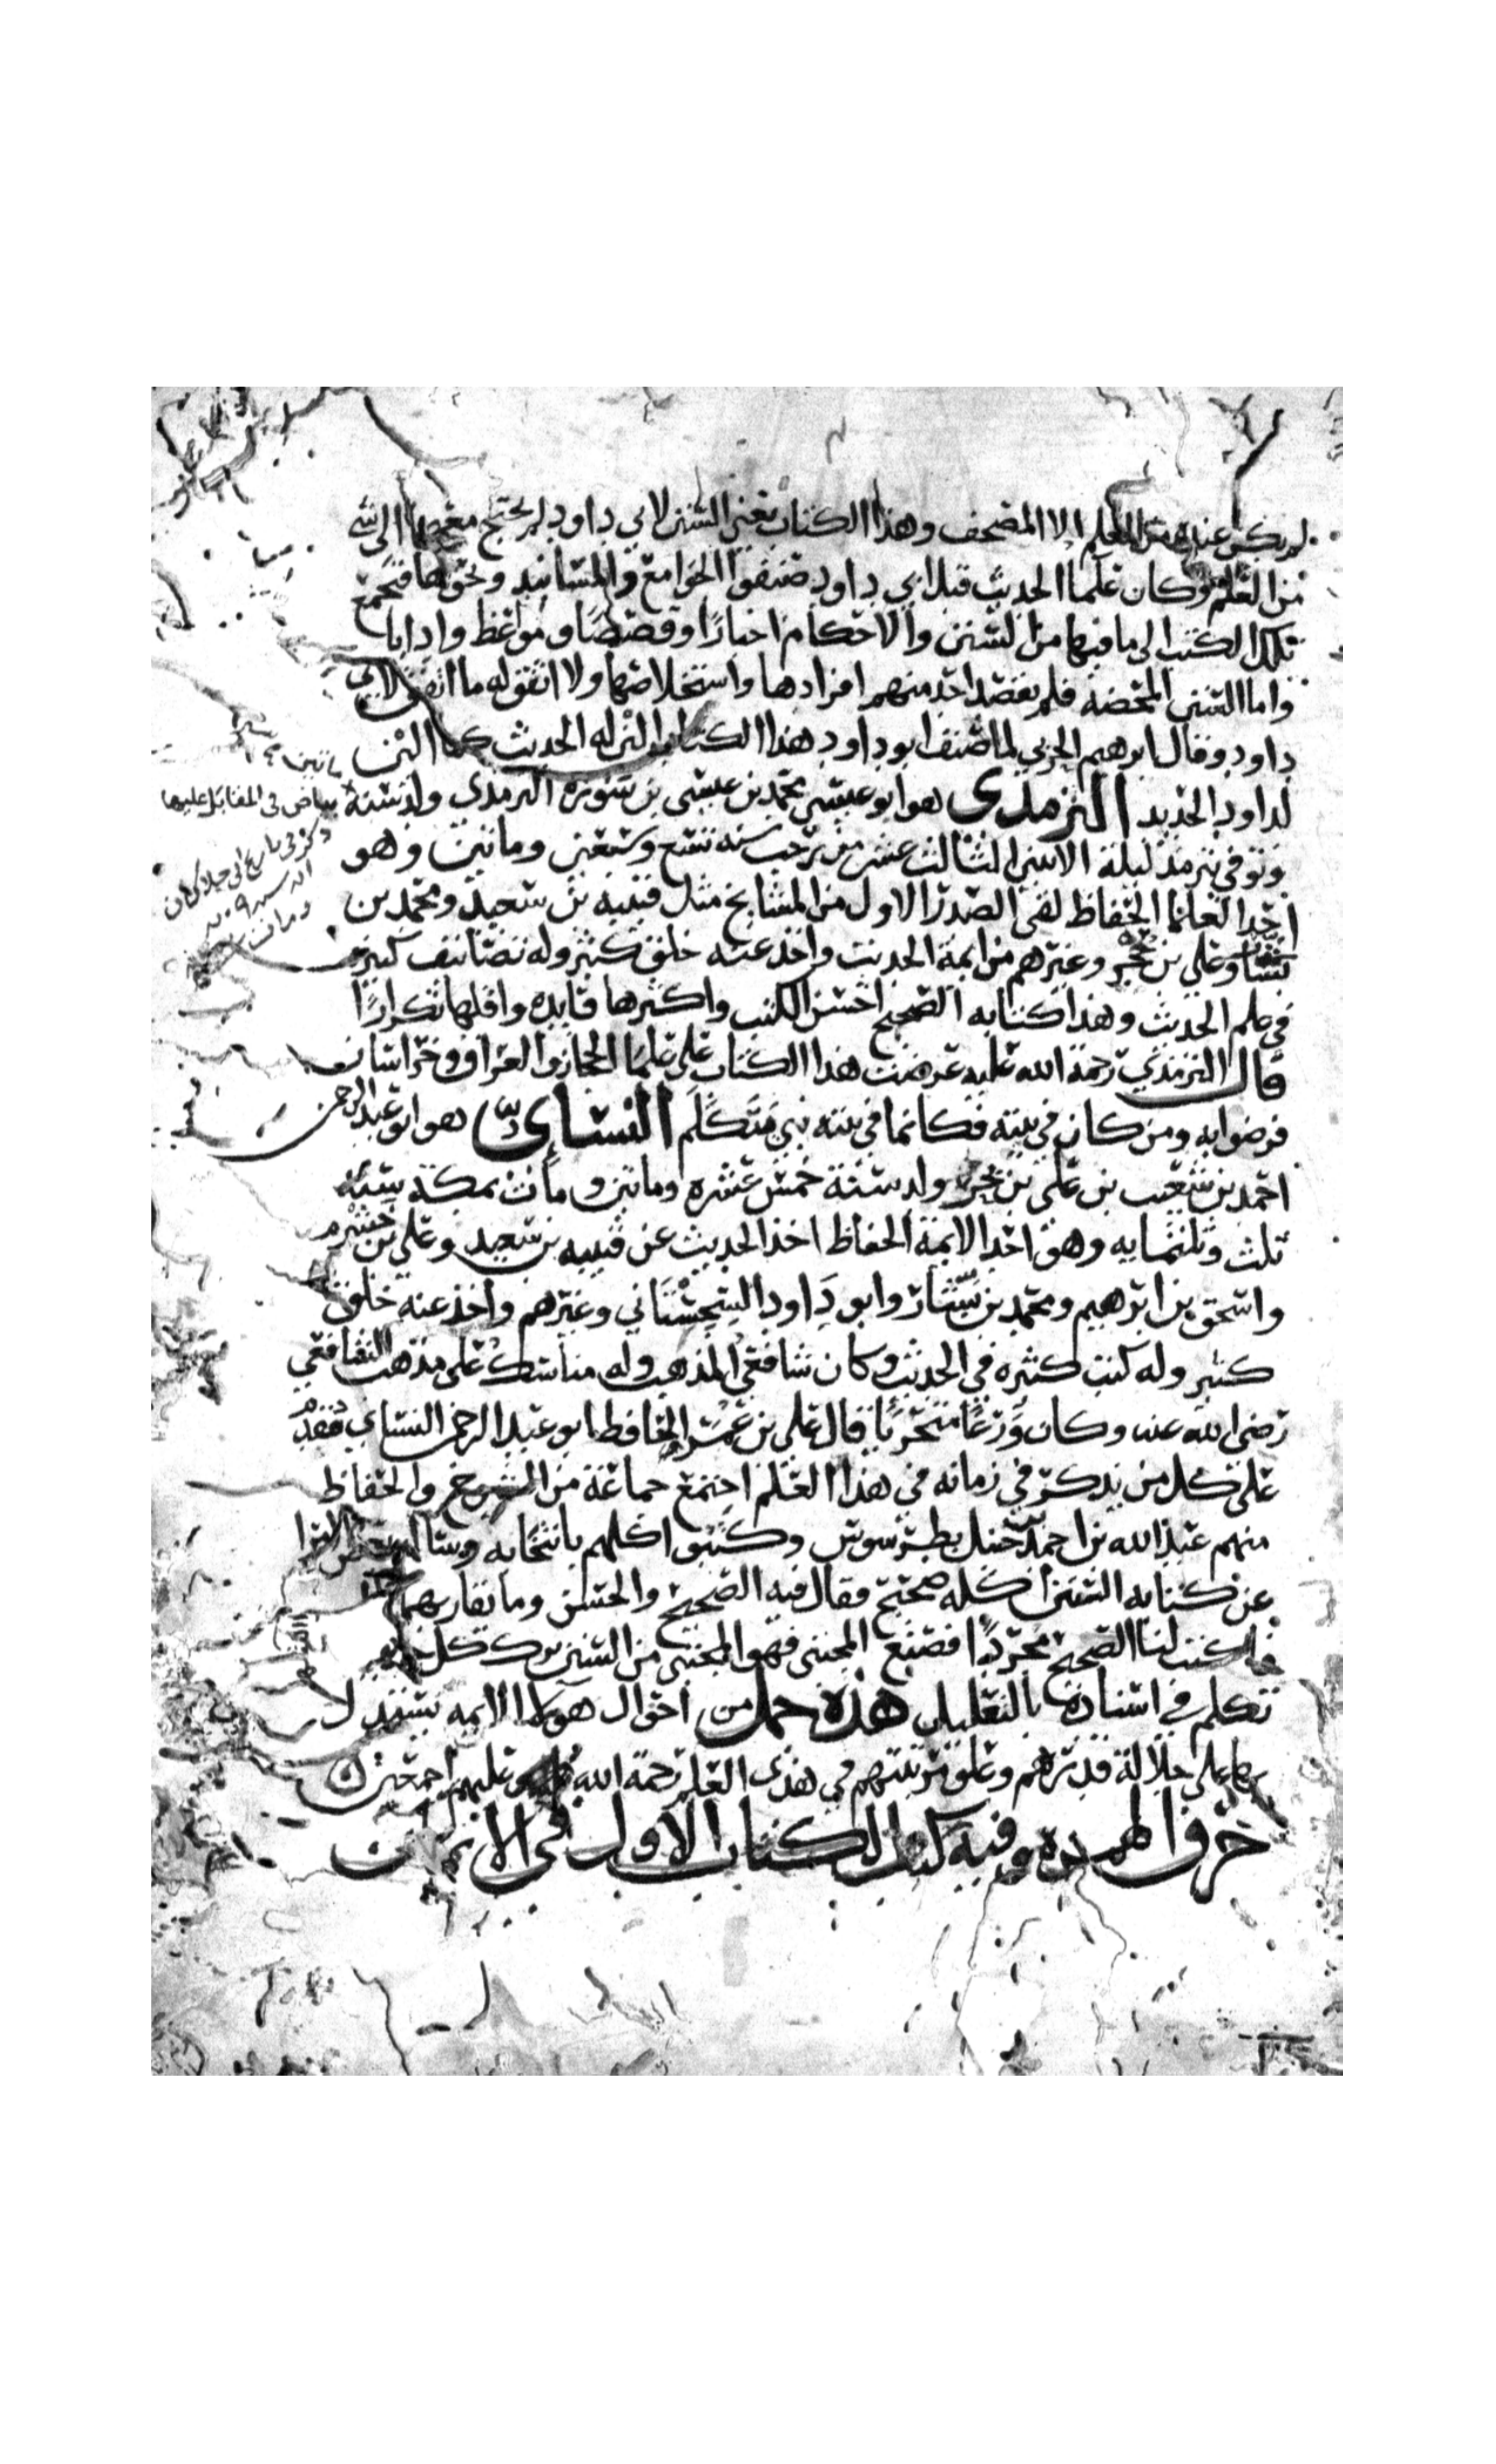 لم يكن عنده من العلم الا المصحف وهذا الكتاب يعني السنن لابي داود لم يحتج معهما الى شي
من العلم وكان علما الحديث قبل ابي داود صنفوا الجوامع والمسانيد ونحوها فتجمع
تلك الكتب الى ما فيها من السنن والاحكام اخبارًا وقصصًا ومواعظ وادابا
واما السنن المحضه فلم يقصد احد منهم افرادها واستخلاصها ولا اتفق له ما اتفق لابي
داود وقال ابرهيم الحربي لما صنف ابو داود هذا الكتاب الين له الحديث كما الين
لداود الحديد الترمذى هو ابو عيسى محمد بن عيسى بن سوره الترمذي ولد سنة
وتوفي بترمذ ليلة الاثنين الثالث عشر من رجب سنه تسع وسبعين وماتين وهو
احد العلما الحفاظ لقى الصدر الاول من المشايخ مثل قتيبه بن سعيد ومحمد بن
بشار وعلي بن حجر وغيرهم من ايمة الحديث واخذ عنه خلق كثير وله تصانيف كثيره
في علم الحديث وهذا كتابه الصحيح احسن الكتب واكثرها فايده واقلها تكرارًا
قال الترمذي رحمة الله عليه عرضت هذا الكتاب على علما الحجاز والعراق وخراسان
فرضوا به ومن كان في بيته فكانما في بيته نبي يتكلم النساى هو ابو عبد الرحمن
احمد بن شعيب بن علي بن بحر ولد سنة خمس عشره وماتين ومات بمكة سنه
ثلث وثلثمايه وهو احد الايمة الحفاظ اخذ الحديث عن قتيبه بن سعيد وعلي بن خشرم
واسحق بن ابرهيم ومحمد بن بشار وابو داود السجستاني وغيرهم واخذ عنه خلق
كثير وله كتب كثيره في الحديث وكان شافعي المذهب وله مناسك على مذهب الشافعي
رضي الله عنه وكان ورعًا متحريًا قال علي بن عمر الحافظ ابو عبد الرحمن النساي مقدم
على كل من يذكر في زمانه في هذا العلم اجتمع جماعة من الشيوخ والحفاظ
منهم عبد الله بن احمد بن حنبل بطرسوس وكتبوا كلهم بانتخابه وسال بعض الامرا
عن كتابه السنن اكله صحيح فقال فيه الصحيح والحسن وما يقاربهما
فاكتب لنا الصحيح مجردًا فصنع المجتبى فهو المجتبى من السنن ترك كل حديث
تكلم في اسناده بالتعليل هذه جمل من احوال هولا الايمه يستدل
بها على جلالة قدرهم وعلو مرتبتهم في هذا العلم رحمة الله وعليهم اجمعين
حرف الهمزه وفيه كتب الكتاب الاول في الايمان
بياض في المقابل عليها